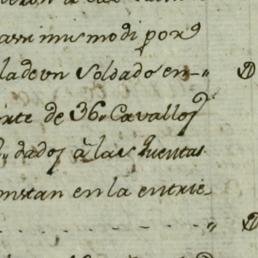 assi mismo di por
la de vn Soldado en-
te de 36„ Cavallos
dados à las quentas
constan en la entrie